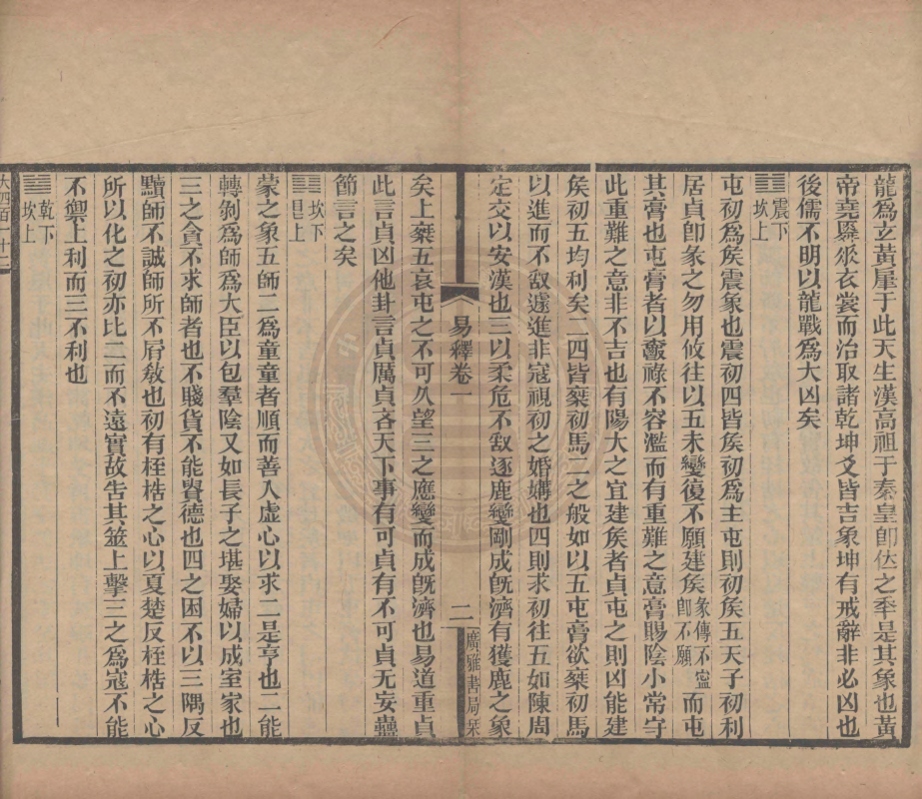 龍爲玄黃屢于此天生漢高祖于秦皇卽位之秊是其象也黃
帝堯舜垂衣裳而治取諸乾坤爻皆吉象坤有戒辭非必凶也
後儒不明以龍戰爲大凶矣
䷂ 震下坎上
屯初爲矦震象也震初四皆矦初爲主屯則初矦五天子初利
居貞卽彖之勿用攸往以五未變復不願建矦彖傳不寍卽不願而屯
其膏也屯膏者以艱祿不容濫而有重難之意膏賜陰小常守
此重難之意非不吉也有陽大之宜建矦者貞屯之則凶能建
矦初五均利矣二四皆椉初馬二之般如以五屯膏欲椉初馬
以進而不敢遽進非寇視初之婚媾也四則求初往五如陳周
定交以安漢也三以柔危不敢逐鹿變剛成旣濟有獲鹿之象
易釋卷一
二
廣雅書局栞
矣上椉五哀屯之不可久望三之應變而成旣濟也易道重貞
此言貞凶他卦言貞厲貞吝天下事有可貞有不可貞无妄蠱
節言之矣
䷃ 坎下艮上
蒙之象五師二爲童童者順而善入虛心以求二是亨也二能
轉剝爲師爲大臣以包羣陰又如長子之堪娶婦以成室家也
三之貪不求師者也不賤貨不能貴德也四之困不以三隅反
黷師不誠師所不屑敎也初有桎梏之心以夏楚反桎梏之心
所以化之初亦比二而不遠實故告其筮上擊三之爲寇不能
不禦上利而三不利也
䷄ 乾下坎上
大四百一十二